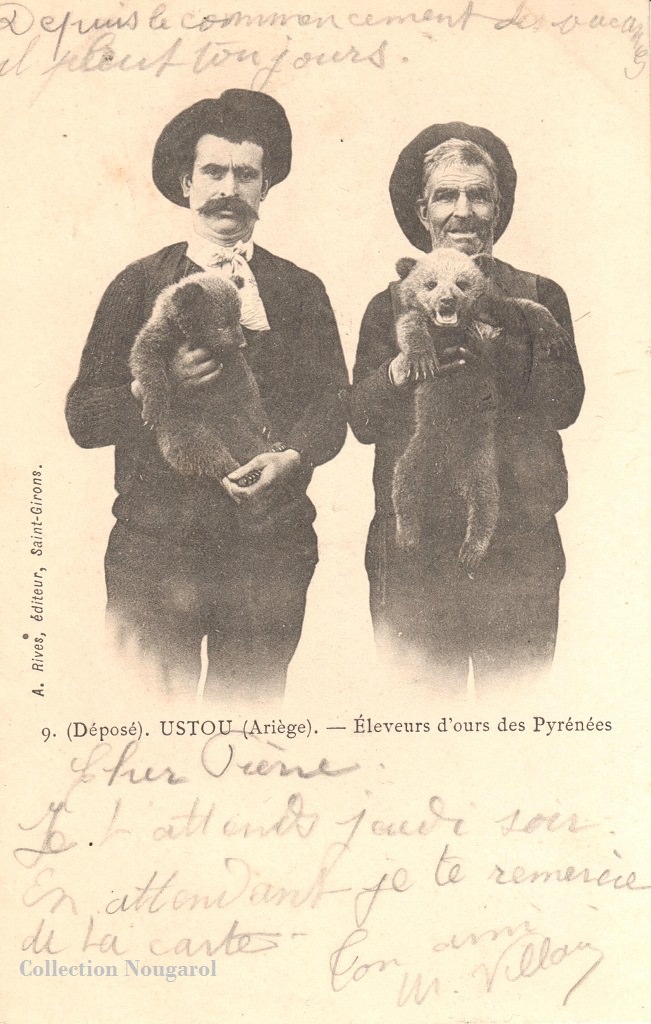 Depuis le commencement des vacances
il pleut toujours.
A. Rives, éditeur, Saint-Girons.
9. (Déposé). USTOU (Ariège). — Éleveurs d'ours des Pyrénées
Cher Pierre.
Je t'attends jeudi soir.
En attendant je te remercie
de ta carte -
Ton ami
M.
Collection Nougarol